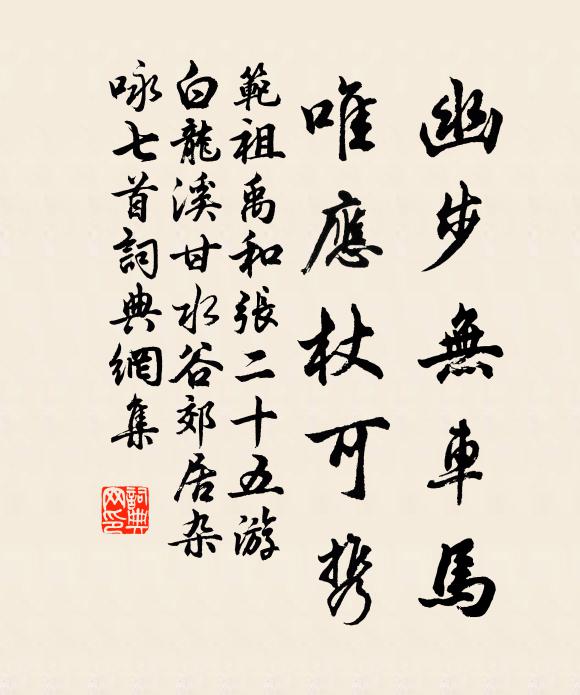 幽步無車馬
唯應杖可携
範祖禹和張二十五游
白龍溪甘水谷郊居杂
咏七首詞典網集
詞典
网印